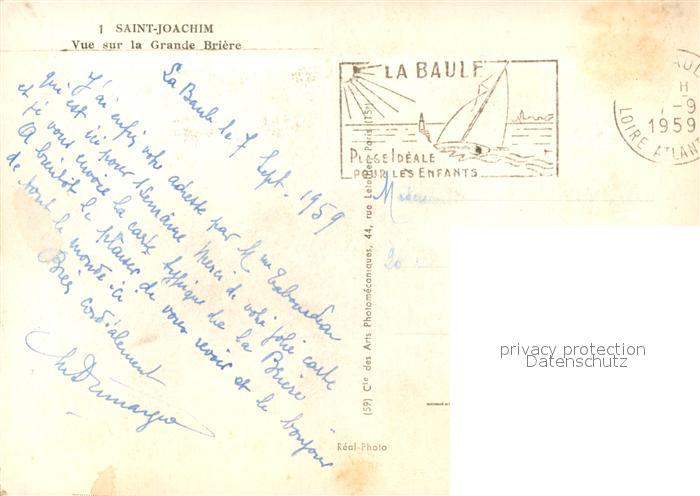 1 SAINT-JOACHIM
Vue sur la Grande Brière
La Baule le 7 Sept. 1959
J'ai enfin votre adresse par Mme
qui est ici pour 1 semaine Merci de votre jolie carte
et je vous envoie la carte typique de la Brière
A bientôt le plaisir de vous revoir et le bonjour
de tout le monde ici
Bien cordialement
LA BAULE
PLAGE IDÉALE
POUR LES ENFANTS
7-9
1959
LOIRE ATLANT
20
(59) Cie des Arts Photomécaniques, 44, rue Letellier, Paris (15e)
Réal-Photo
privacy protection
Datenschutz